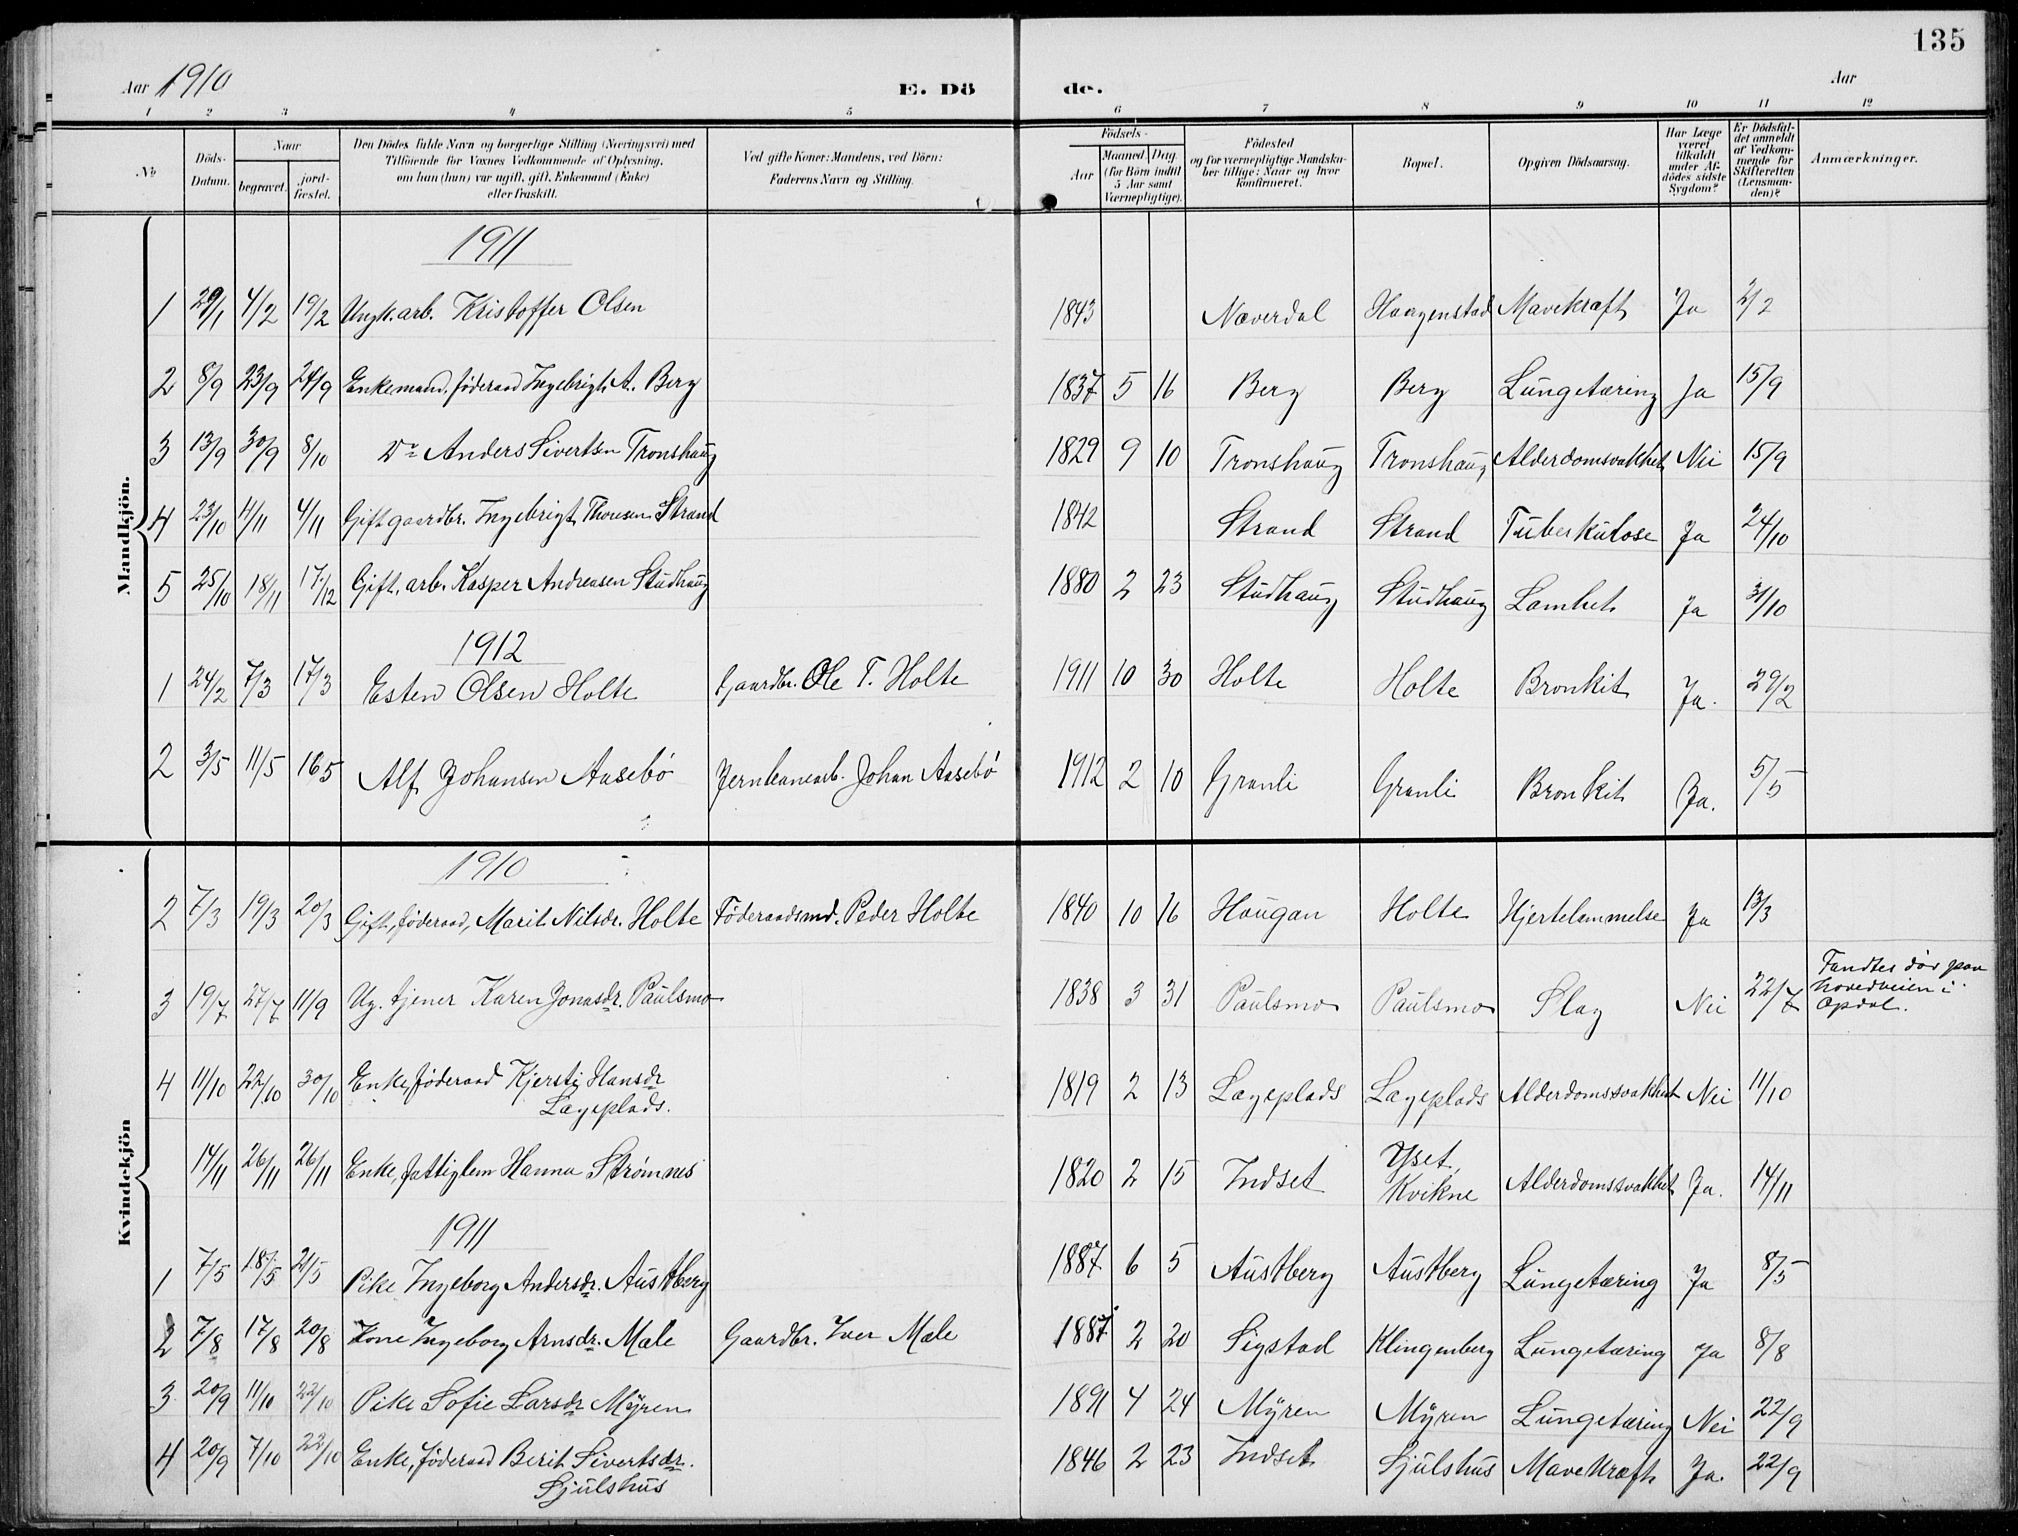 135
Aar 1910 E. Dö de. Aar
1 2 3 4 5 6 7 8 9 10 11 12
No
Döds-Datum.
Naar
begravet.
jord-fæstet.
Den Dödes fulde Navn og borgerlige Stilling (Næringsvei) med
Tilföiende for Voxnes Vedkommende af Oplysning,
om han (hun) var ugift, gift, Enkemand (Enke)
eller fraskilt.
Ved gifte Koner: Mandens, ved Börn:
Faderens Navn og Stilling.
Födsels-
Aar
Maaned. Dag.
(for Börn indtil
5 Aar samt
Værnepligtige).
Födested
og for værnepligtige Mandska-
ber tillige: Naar og hvor
konfirmeret.
Bopæl.
Opgiven Dödsaarsag.
Har Læge
været
tilkaldt
under Af-
dödes sidste
Sygdom?
Er Dödsfal-
det anmeldt
af Vedkom-
mende for
Skifteretten
(Lensman-
den)?
Anmærkninger.
Mandkjön.
1911
1 29/1 4/2 19/2 Ungk. arb. Kristoffer Olsen 1843 Næverdal Haagenstad Mavekræft Ja 2/2
2 8/9 23/9 24/9 Enkemand, föderaad Ingebrigt A. Berg 1837 5 16 Berg Berg Lungetæring Ja 15/9
3 13/9 30/9 8/10 Do Anders Sivertsen Tronshaug 1829 9 10 Tronshaug Tronshaug Alderdomsvakhet Nei 15/9
4 23/10 4/11 4/11 Gift gaardbr. Ingebrigt Thoresen Strand 1842 Strand Strand Tuberkulose Ja 24/10
5 25/10 18/11 17/12 Gift. arb. Kasper Andreasen Studhaug 1880 2 23 Studhaug Studhaug Lamhet Ja 31/10
1912
1 24/2 7/3 17/3 Esten Olsen Holte Gaardbr. Ole T. Holte 1911 10 30 Holte Holte Bronkit Ja. 29/2
2 3/5 11/5 16 5 Alf Johansen Aasebö Jernbanearb. Johan Aasebö 1912 2 10 Granli Granli Bronkit Ja. 5/5
Kvindekjön
1910
2 7/3 19/3 20/3 Gift, föderaad, Marit Nilsdr. Holte Föderaadsmd. Peder Holte 1840 10 16 Haugan Holte Hjertelammelse Ja 13/3
3 19/7 27/7 11/9 Ug. tjener Karen Jonasdr. Paulsmo 1838 3 31 Paulsmo Paulsmo Slag Nei 22/7 Fandtes död paa
hovedveien i
Opdal.
4 11/10 22/10 30/10 Enke, föderaad Kjersti Hansdr
Lægeplads. 1819 2 13 Lægeplads Lægeplads Alderdomssvakhet Nei 11/10
14/11 26/11 26/11 Enke, fattiglem Hanna Strömnes 1820 2 15 Indset Yset,
Kvikne Alderdomssvakhet Ja. 14/11
1911
1 7/5 18/5 21/5 Pike Ingeborg Andersdr. Austberg 1887 6 5 Austberg Austberg Lungetæring Ja 8/5
2 7/8 17/8 20/8 Kone Ingeborg Arnsdr. Mæle Gaardbr. Iver Mæle 1887 2 20 Sigstad Klingenberg Lungetæring Ja 8/8
3 20/9 11/10 22/10 Pike Sofie Larsdr Myren 1891 4 24 Myren Myren Lungetæring Nei 22/9
4 20/9 7/10 22/10 Enke, föderaad Berit Sivertsdr.
Sjulshus 1846 2 23 Indset Sjulshus Mavekræft Ja. 22/9